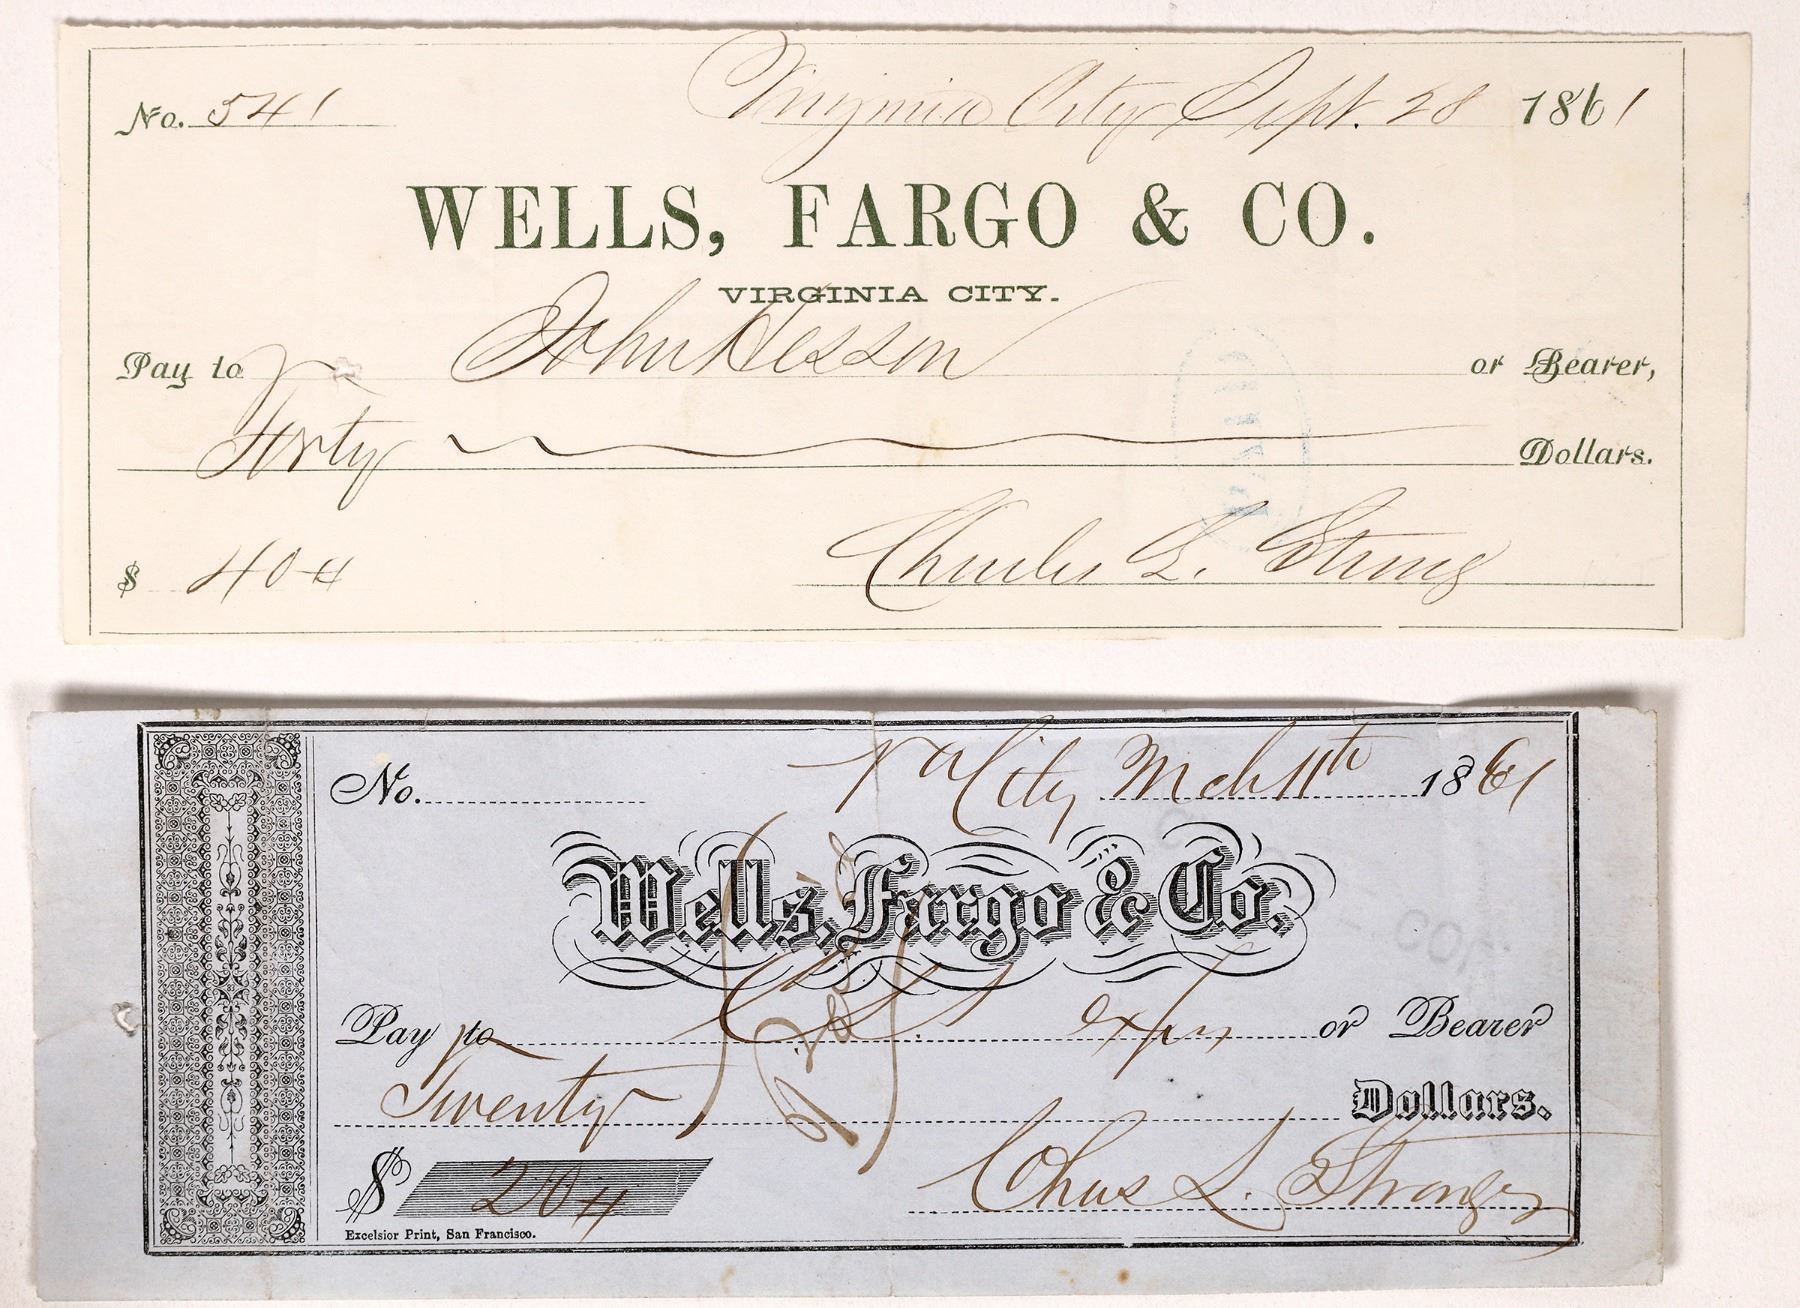 No. 541 Virginia City Sept. 28 1861
WELLS, FARGO & CO.
VIRGINIA CITY.
Pay to John Hesson or Bearer,
Forty Dollars.
$ 40
Charles L. Strong
No. Va City Mch 11th 1861
Wells, Fargo & Co.
Pay to or Bearer
Twenty Dollars.
$ 20
Chas L. Strong
Excelsior Print, San Francisco.